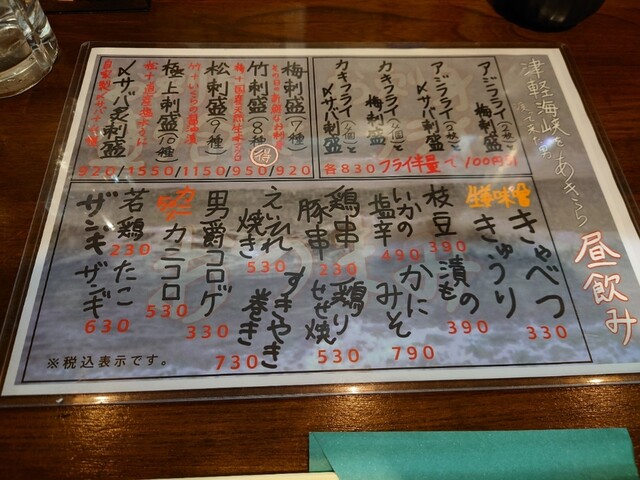 津軽海峡を
あきらら
昼飲み
アジフライ
梅刺盛
アジフライ
〆サバ刺盛
カキフライ
梅刺盛
カキフライ
〆サバ刺盛
各830
フライ半量で100円引
梅刺盛(7種)
920
竹刺盛(8種)
得
950
松刺盛(9種)
1150
極上刺盛(10種)
1550
〆サバ炙刺盛
920
きゃべつ
330
きゅうり
390
漬もの
枝豆
390
かにみそ
790
いかの塩辛
490
鶏串
豚串
230
鶏せせり焼
530
えいひれ焼き
530
すきやき巻き
730
男爵コロッケ
330
カニコロ
530
若鶏
ザンギ
230
たこ
ザンギ
630
※税込表示です。